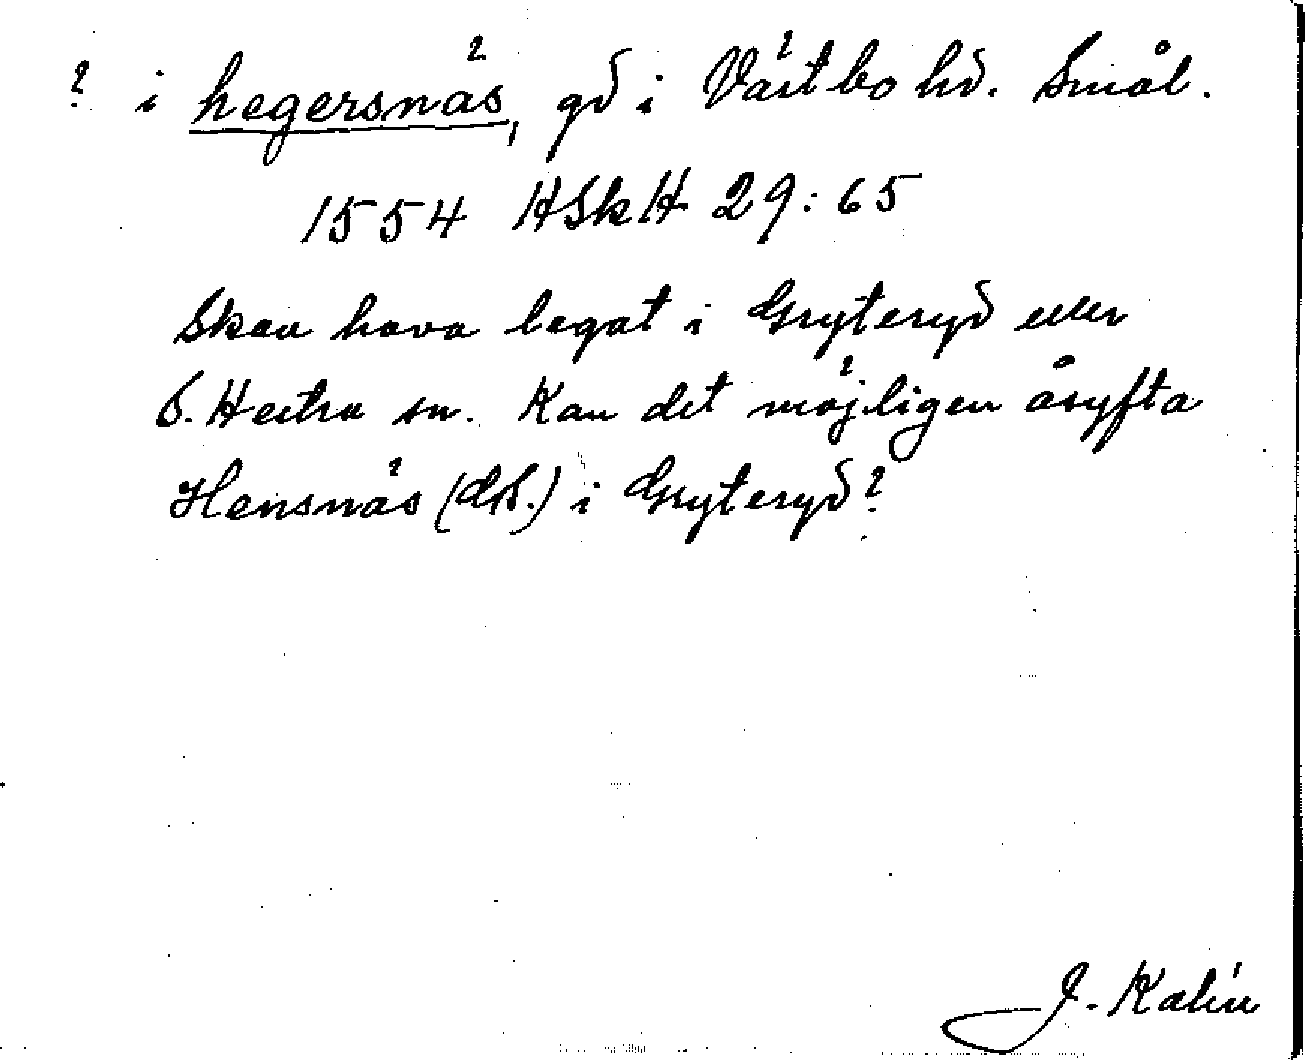 ? i hegersnäs, gd i Västbo hd. Smål.
1554 HSkH 29:65
Skau hava legat i Gryteryd eller
S. Hestra sn. Kan det möjligen åsyfta
Hensnäs (GK.) i Gryteryd?
J. Kalén